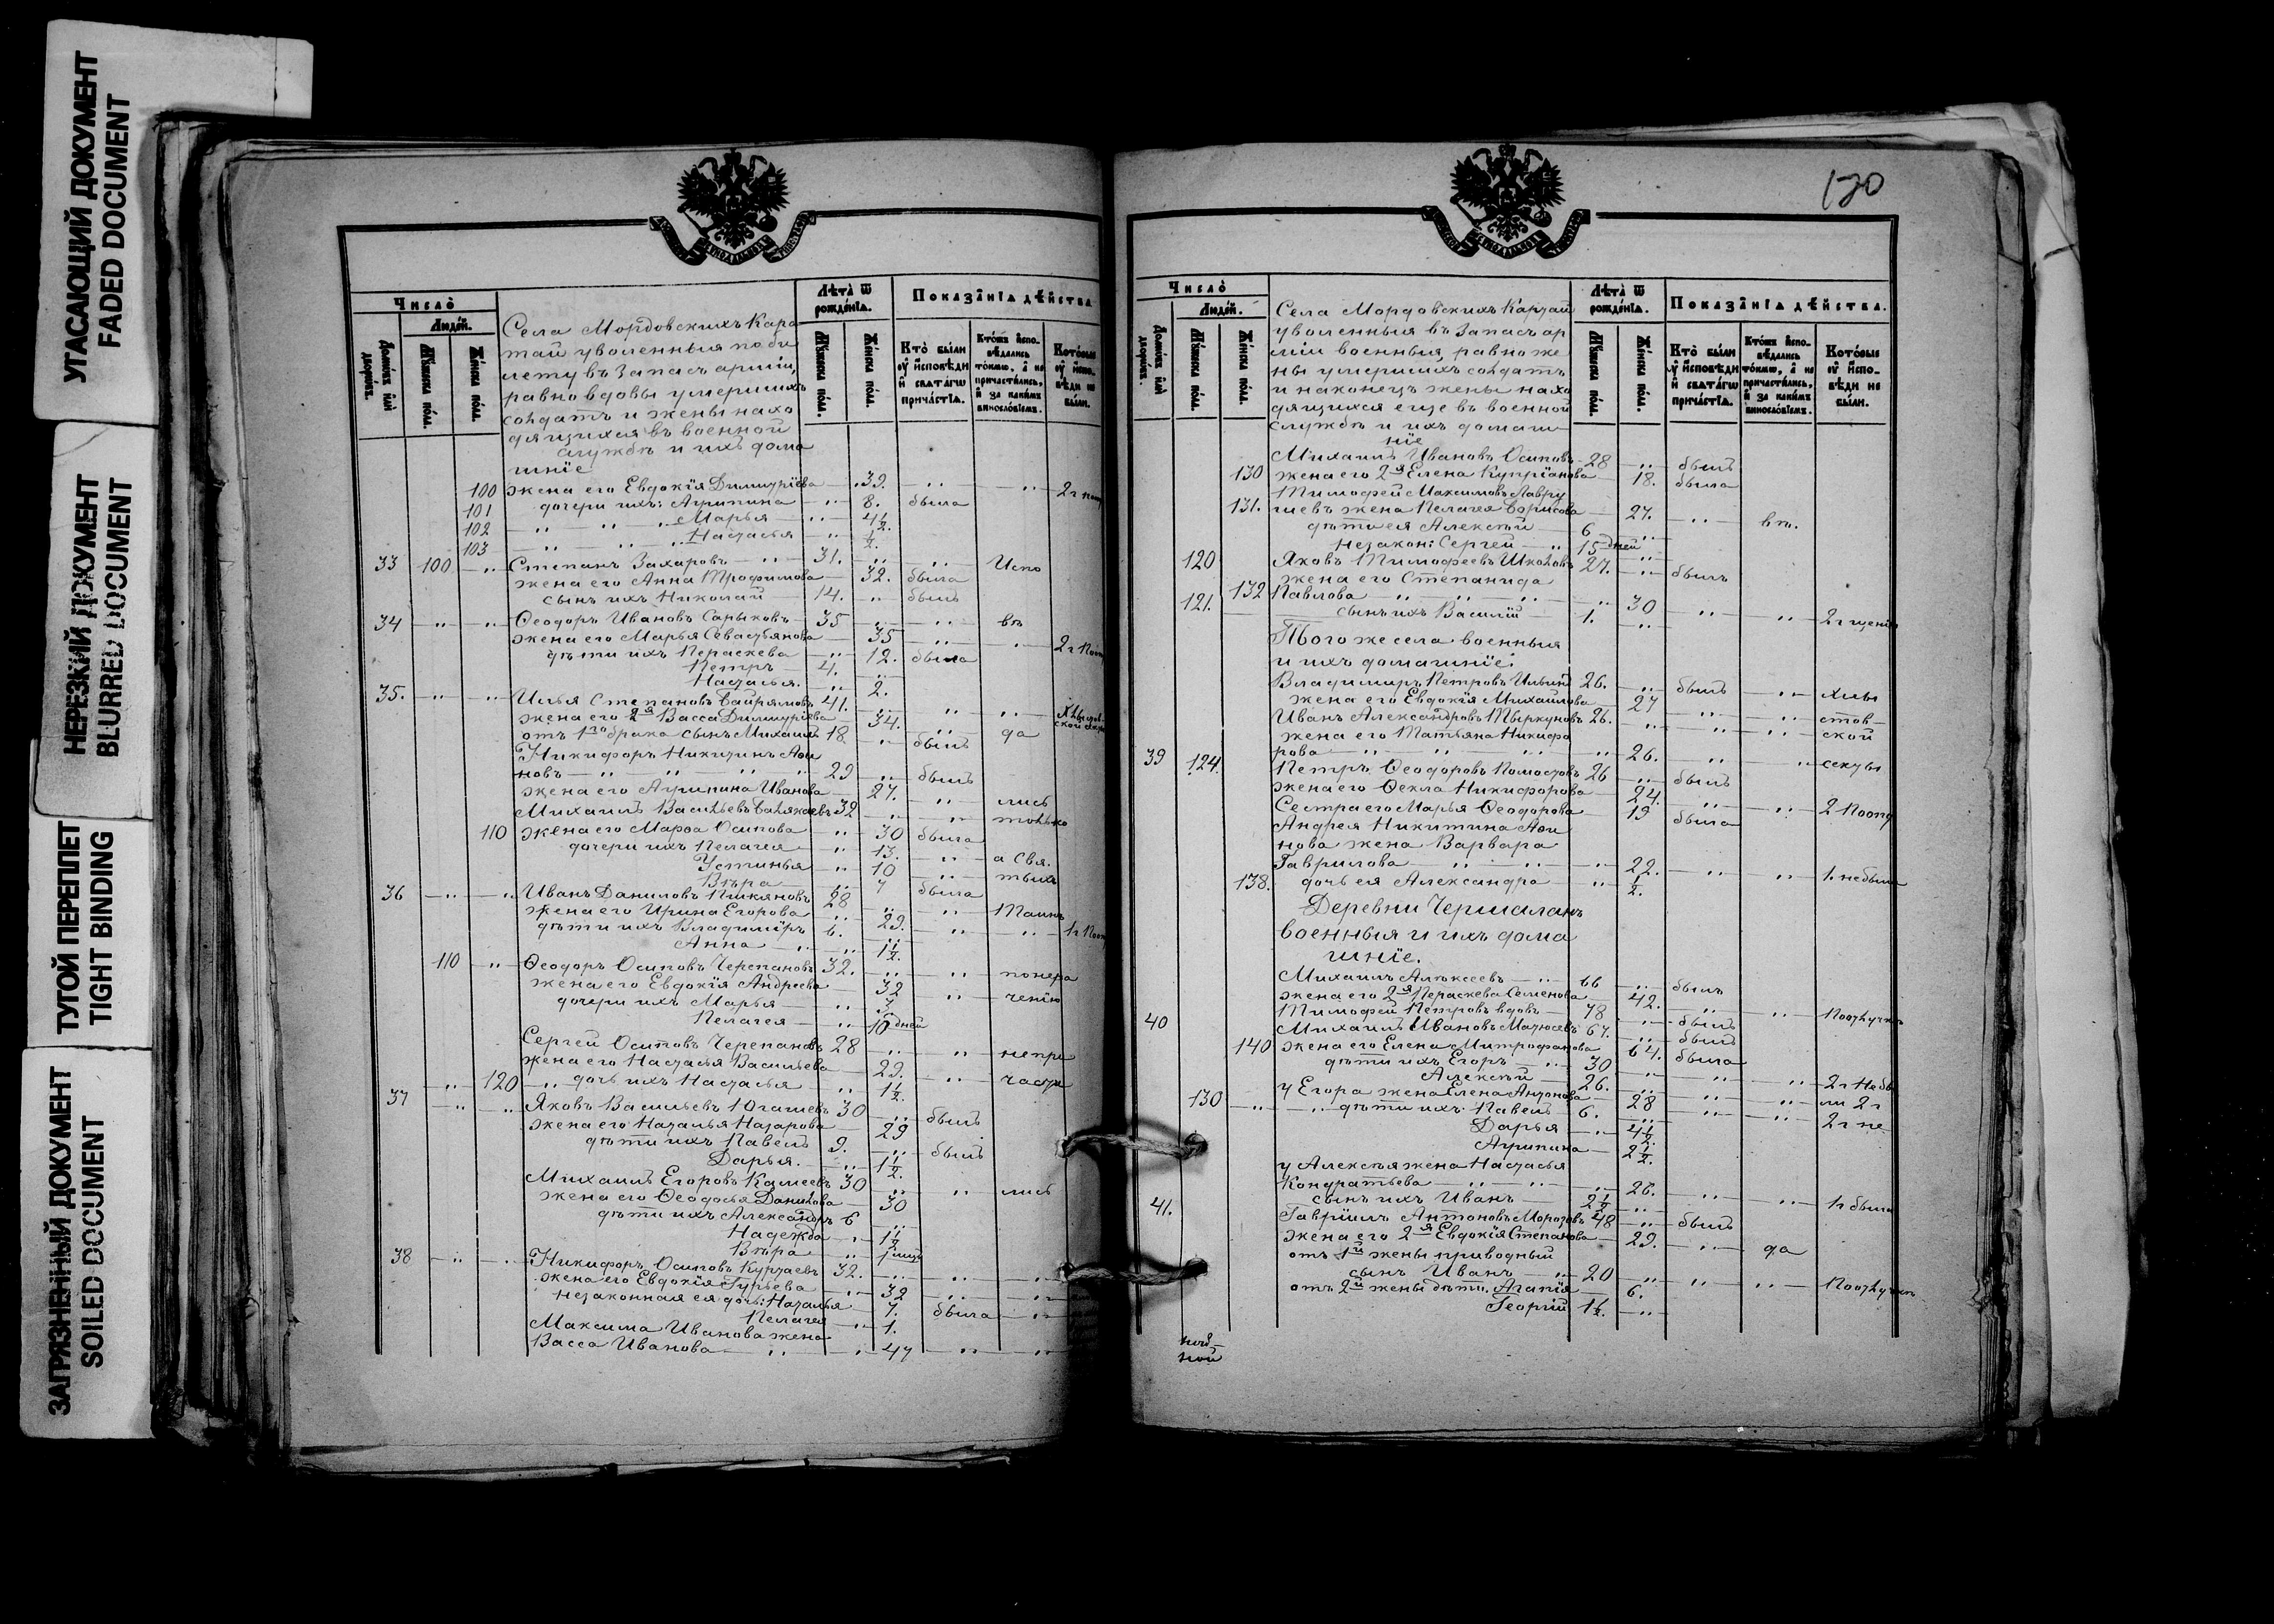 УГАСАЮЩИЙ ДОКУМЕНТ
FADED DOCUMENT
НЕРЕЗКИЙ ДОКУМЕНТ
BLURRED DOCUMENT
ТУГОЙ ПЕРЕПЛЕТ
TIGHT BINDING
ЗАГРЯЗНЕННЫЙ ДОКУМЕНТ
SOILED DOCUMENT
Число
Людей.
Домовъ или дворовъ.
Мужеска полу.
Женска полу.
Села Мордовскихъ Кара
тай уволенныя по би
лету въ запасъ арміи,
равно вдовы умершихъ
солдатъ и жены нахо
дящихся въ военной
службѣ и ихъ дома
шніе
Лѣта ѿ рожденія.
Мужеска полу.
Женска полу.
Показанія дѣйства
Кто были у исповѣди и святаго причастія.
Кто же исповѣдались токмо, а не причастились, и за какимъ винословіемъ.
100 жена его Евдокія Димитріева 32.
101 дочери ихъ: Агрипина 8. была
102 Марья 4½.
103 Настасья ½.
33 100 Степанъ Захаровъ 31. Испо
жена его Анна Трофимова 32. была
сынъ ихъ Николай 14. былъ
34 Ѳеодоръ Ивановъ Сарыковъ 35 вѣ
жена его Марья Севастьянова 35
дѣти ихъ Пераскева 12. была
Петръ 4.
Настасья. 2.
35. Илья Степановъ 41.
жена его 2я Васса Димитріева 34.
отъ 1го брака сынъ Михаилъ 18 былъ да
Никифоръ Никитинъ Аѳи
новъ 29 былъ
жена его Агрипина Иванова 27. лись
Михаилъ Васильевъ 32 только
110 жена его Марѳа Осипова 30 была
дочери ихъ Пелагея 13. а Свя.
Устинья 10 тыхъ
Вѣра 7 была
36 Иванъ Даниловъ 28 Таинъ
жена его Ирина Егорова 29.
дѣти ихъ Владиміръ 6.
Анна 1½.
110 Ѳеодоръ Осиповъ Черепановъ 32. понера
жена его Евдокія Андреева 32 ченію
дочери ихъ Марья 3
Пелагея 10 дней
Сергей Осиповъ Черепановъ 28 непри
жена его Настасья Васильева 29. части
120 дочь ихъ Настасья 1½.
37 Яковъ Васильевъ Югашевъ 30 былъ
жена его Наталья Назарова 29
дѣти ихъ Павелъ 9. былъ
Дарья. 1½.
Михаилъ Егоровъ 30 лись
жена его Ѳеодосья Данилова 30
дѣти ихъ Александръ 6
Надежда 1½
Вѣра 1
38 Никифоръ Осиповъ Куртаевъ 32.
жена его Евдокія Гурьева 32
незаконная ея дочь: Наталья 7. была
Пелагея 1.
Максима Иванова жена
Васса Иванова 47
120
Число
Людей.
Домовъ или дворовъ.
Мужеска полу.
Женска полу.
Села Мордовскихъ Каратай
уволенныя въ Запасъ ар
міи военныя, равно же
ны умершихъ солдатъ
и наконецъ жены нахо
дящихся еще въ военной
службѣ и ихъ домаш
ніе
Лѣта ѿ рожденія.
Мужеска полу.
Женска полу.
Показанія дѣйства.
Кто были у исповѣди и святаго причастія.
Кто же исповѣдались токмо, а не причастились, и за какимъ винословіемъ.
Которые у исповѣди не были.
Михаилъ Ивановъ Осиповъ 28 былъ
130 жена его 2я Елена Купріанова 18. была
Тимофей Максимовъ Лавру
131. шевъ жена Пелагея Борисова 27. вѣ.
дѣти ея Алексѣй 6
незакон: Сергей 15 дней
120 Яковъ Тимофеевъ Школовъ 27. былъ
жена его Степанида
132 Павлова 30
121. сынъ ихъ Василій 1.
Того же села военныя
и ихъ домашніе:
Владимиръ Петровъ Ильинъ 26. былъ хлы
жена его Евдокія Михаилова 27 стов-
Иванъ Александровъ Тыркуновъ 26. ской
жена его Татьяна Никифо
рова 26. секты
39 124. Петръ Ѳеодоровъ 26 былъ
жена его Ѳекла Никифорова 24.
Сестра его Марья Ѳеодорова 19 была
Андрея Никитина Аѳи
нова жена Варвара
Гаврилова 22.
138. дочь ея Александра ½.
Деревни Чершаланъ
военныя и ихъ дома
шніе.
Михаилъ Алексеевъ 66 былъ
жена его 2я Пераскева Семенова 42.
Тимофей Петровъ вдовъ 78 былъ
40 Михаилъ Ивановъ 67. былъ
140 жена его Елена Митрофанова 64. была
дѣти ихъ Егоръ 30
Алексѣй 26.
у Егора жена Елена Антонова 28
130 дѣти ихъ: Павелъ 6.
Дарья 4½.
Агрипина 2½.
у Алексѣя жена Настасья
Кондратьева 26.
сынъ ихъ Иванъ 2½
41. Гавріилъ Антоновъ Морозовъ 48 былъ
жена его 2я Евдокія Степанова 29. да
отъ 1й жены приводный
сынъ Иванъ 20
отъ 2й жены дѣти. Агапія 6.
Георгій 1½.